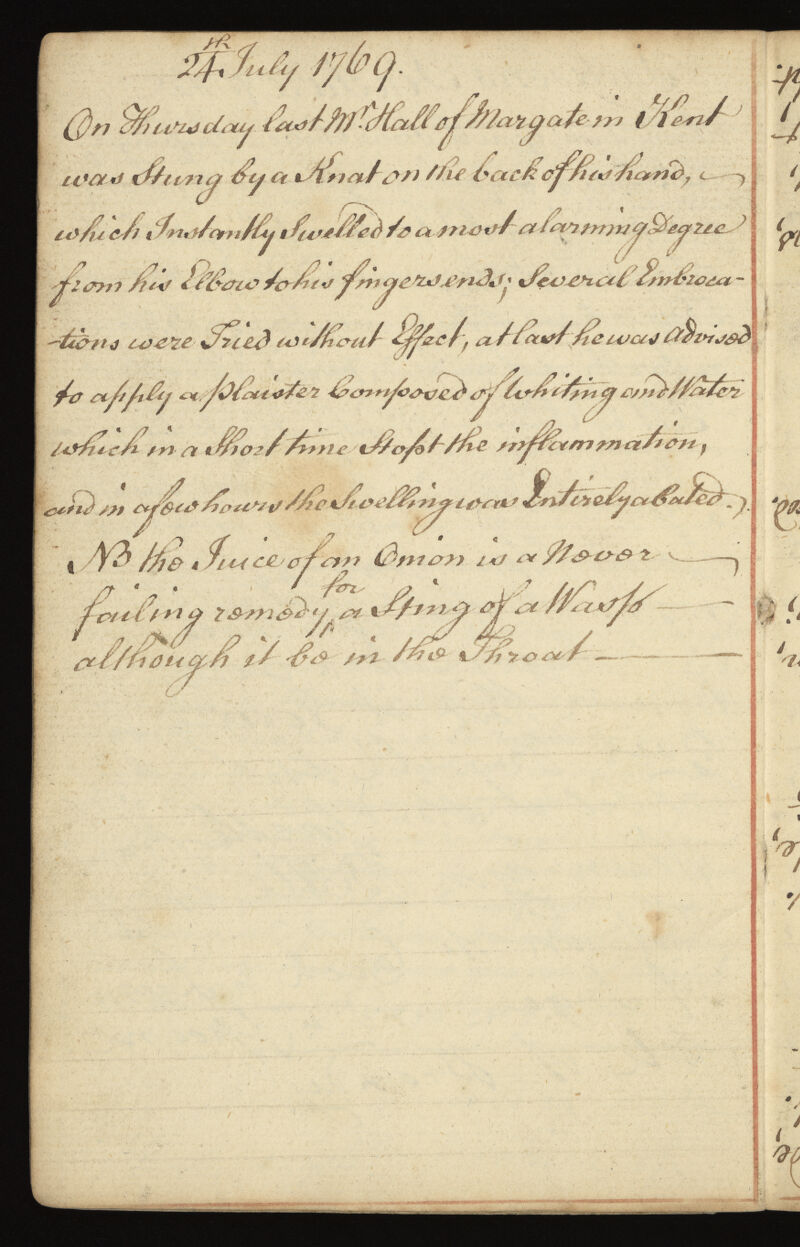 24th July 1769.
On Thursday last Mr. Hall of Margate in Kent
was Stung by a Knat on the back of his hand,
which Instantly Swelled to a most alarming Degree
from his Elbow to his fingers ends; Several Embroca-
-tions were Tried without Effect, at last he was advised
to apply a plaister Composed of Whiting and Water
which in a Short time Stopt the inflammation,
and in a few hours the Swelling was Entirely abated.
NB the Juice of an Onion is a Never
failing remedy for a Sting of a Wasp
although it be in the Throat